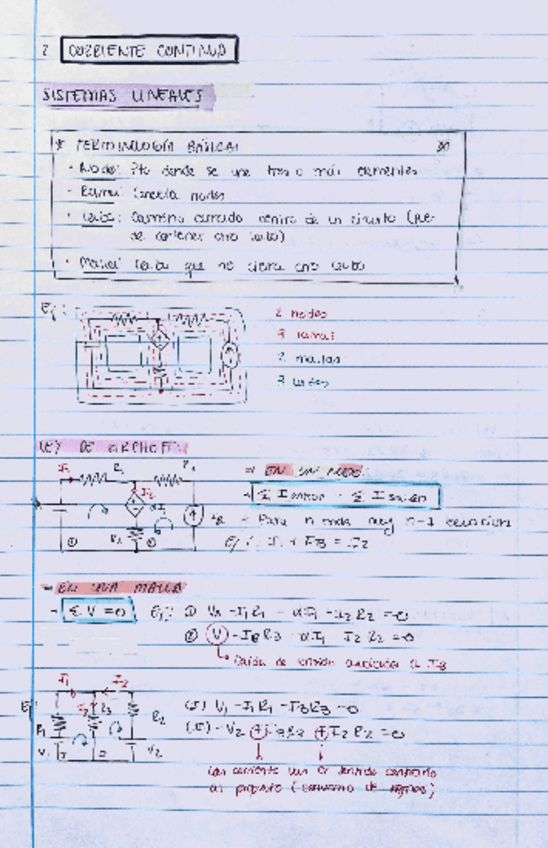 2 CORRIENTE CONTINUA
SISTEMAS LINEALES
* TERMINOLOGÍA BÁSICA:
· Nodo: Pto donde se une tres o más elementos
· Rama: Conecta nodos
· Lazo: Camino cerrado dentro de un circuito (pue-
de contener otro lazo)
· Malla: lazo que no cierra otro lazo
Ej:
2 nodos
3 ramas
2 mallas
3 lazos
LEY DE KIRCHOFF:
→ EN UN NODO
→ Σ I entran = Σ I salen
→ Para n nodos hay n-1 ecuaciones
Ej: I1 + IB = I2
I1 R1
I2
αI1
R2
IB
① ②
→ EN UNA MALLA
→ Σ V = 0 Ej: ① VA - I1R1 - αI1 - I2R2 = 0
② V - IBR3 - αI1 - I2R2 = 0
Caída de tensión asociada a IB
Ej:
I1 I2
I3 R3
R1 R2
V1 V2
(I) V1 - I1R1 - I3R3 = 0
(II) - V2 + I3R3 + I2R2 = 0
Las corriente van en sentido contrario
al propuesto (convenio de signos)